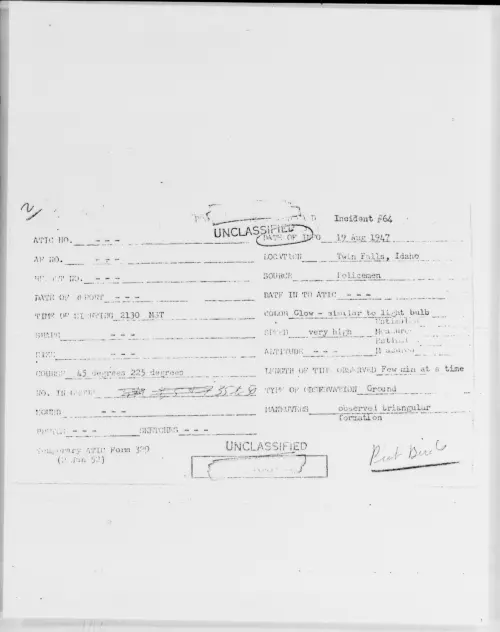 2
Incident #64
UNCLASSIFIED
ATIC NO. - - - DATE OF INFO 19 Aug 1947
AF NO. - - - LOCATION Twin Falls, Idaho
REPORT NO. - - - SOURCE Policemen
DATE OF REPORT - - - DATE IN TO ATIC - - -
TIME OF SIGHTING 2130 MST COLOR Glow - similar to light bulb
SHAPE - - - SPEED very high
SIZE - - - ALTITUDE - - -
COURSE 45 degrees 225 degrees LENGTH OF TIME OBSERVED Few min at a time
NO. IN GROUP TYPE OF OBSERVATION Ground
SOUND - - - MANEUVERS observed triangular
formation
PHOTOS - - - SKETCHES - - -
Temporary ATIC Form 329
(2 Jan 52)
UNCLASSIFIED